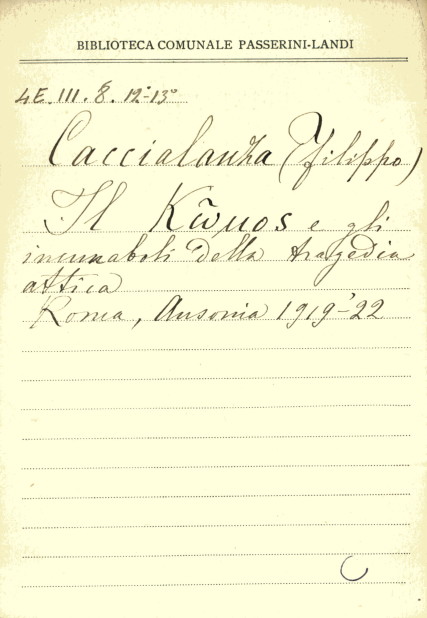 BIBLIOTECA COMUNALE PASSERINI-LANDI
4E. III. 8. 12°-13°
Caccialanza (Filippo)
Il Κῶμος e gli
incunaboli della tragedia
attica
Roma, Ausonia 1919-22